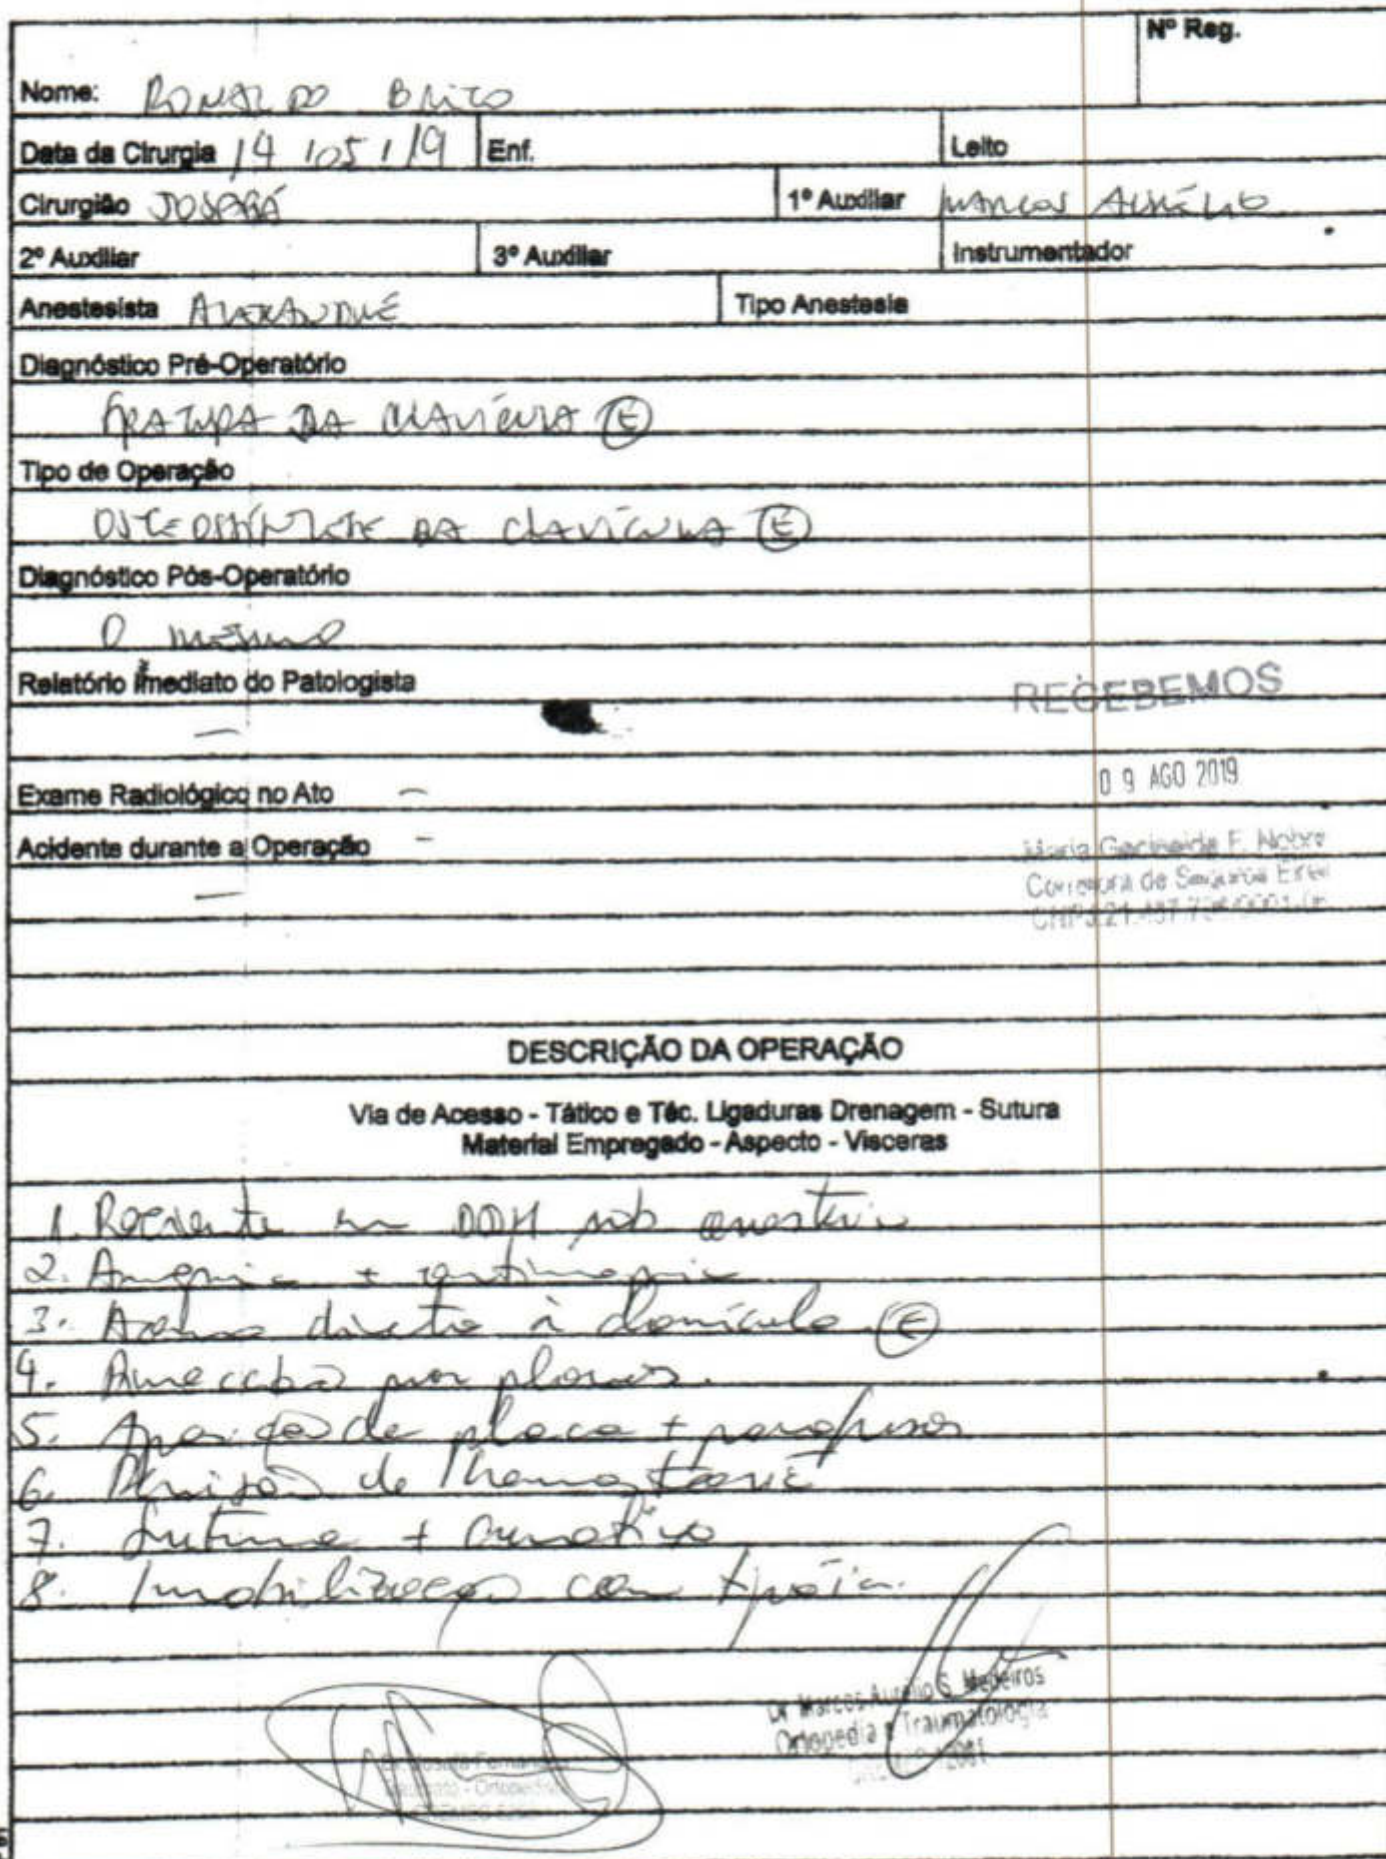 Nº Reg.
Nome: RONALDO BRITO
Data da Cirurgia 14 / 05 / 19 Enf. Leito
Cirurgião JOSAFÁ 1º Auxiliar MARCOS AURÉLIO
2º Auxiliar 3º Auxiliar Instrumentador
Anestesista ALEXANDRE Tipo Anestesia
Diagnóstico Pré-Operatório
FRATURA DA CLAVÍCULA (E)
Tipo de Operação
OSTEOSSÍNTESE DA CLAVÍCULA (E)
Diagnóstico Pós-Operatório
O mesmo
Relatório Imediato do Patologista
RECEBEMOS
—
Exame Radiológico no Ato –
09 AGO 2019
Acidente durante a Operação –
Maria F. Nobre
Corretora de
—
DESCRIÇÃO DA OPERAÇÃO
Via de Acesso - Tático e Téc. Ligaduras Drenagem - Sutura
Material Empregado - Aspecto - Visceras
1. Paciente em DDH sob anestesia
2. Assepsia + antissepsia
3. Acesso direto à clavícula (E)
4. Dissecção por planos.
5. Aposição de placa + parafusos
6. Revisão de Hemostasia
7. Sutura + curativo
8. Imobilização com tipóia.
Dr. Marcos Aurélio S. Medeiros
Ortopedia e Traumatologia
Dr. Josafá Fernandes